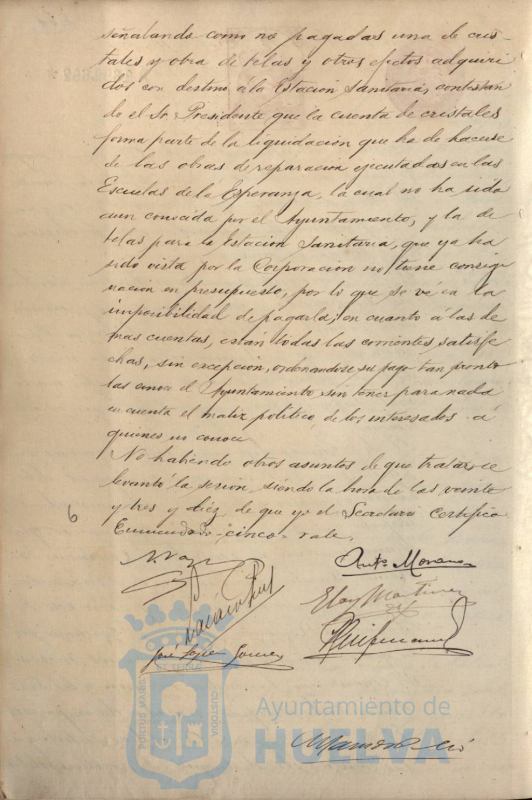 señalando como no pagadas una de cris-
tales y obra de telas y otros efectos adquiri
dos con destino á la Estacion Sanitaria, contestan
do el Sr. Presidente que la cuenta de cristales
forma parte de la liquidacion que ha de hacerse
de las obras de reparacion ejecutadas en las
Escuelas de la Esperanza, la cual no ha sido
aun conocida por el Ayuntamiento, y la de
telas para la Estacion Sanitaria, que ya ha
sido vista por la Corporacion no tiene consig
nacion en presupuesto, por lo que se vé en la
imposibilidad de pagarla; en cuanto á las de
mas cuentas, estan todas las corrientes satisfe
chas, sin excepcion, ordenandose su pago tan pronto
las conoce el Ayuntamiento sin tener para nada
en cuenta el matiz politico de los interesados á
quienes no conoce.
No habiendo otros asuntos de que tratar, se
levantó la sesion, siendo la hora de las veinte
y tres y diez, de que yo el Secretario certifico
6
Enmendado - cinco - vale.
Antº Moreno
Eloy Martinez
José Gomez
PORTUS MARIS
ET TERRAE
CUSTODIA
Ayuntamiento de
HUELVA